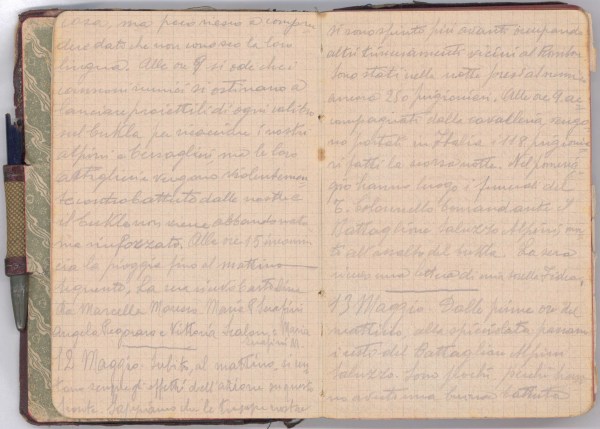 cosa, ma poco riesco a compren
dere dato che non conosco la loro
lingua. Alle ore 9 si ode che i
cannoni nemici si ostinano a
lanciare proiettili di ogni calibro
sul Cukla per riaccendere i nostri
alpini e bersaglieri ma le loro
artiglierie vengono violentemen
te controbattute dalle nostre e
il Cukla non viene abbandonato
ma rinforzato. Alle ore 15 incomin
cia la pioggia fino al mattino
seguente. La sera invio Cartoline
tra Marcella Moreno, Maria P. Serafini
Angelo Pegoraro e Vittoria Scaloni e Maria
Serafini M.
12 Maggio. Subito, al mattino, si sen
tono sempre gli effetti dell'azione su questo
fronte. Sappiamo che le truppe nostre
si sono spinte più avanti occupando
altri trinceramenti vicini al Rombon
Sono stati nella notte presi al nemico
ancora 250 prigionieri. Alle ore 9 ac
compagnati dalla cavalleria vengo
no portati in Italia i 118 prigionie
ri fatti la scorsa notte. Nel pomerig
gio hanno luogo i funerali del
T. Colonnello Comandante il
Battaglione Saluzzo Alpini mor
ti all'assalto del Cukla. La sera
invio una lettera di mia sorella Fidea.
13 Maggio. Dalle prime ore del
mattino, alla spicciolata, passano
i resti del Battaglione Alpini
Saluzzo. Sono pochi, perchè hanno
avuta una buona battuta